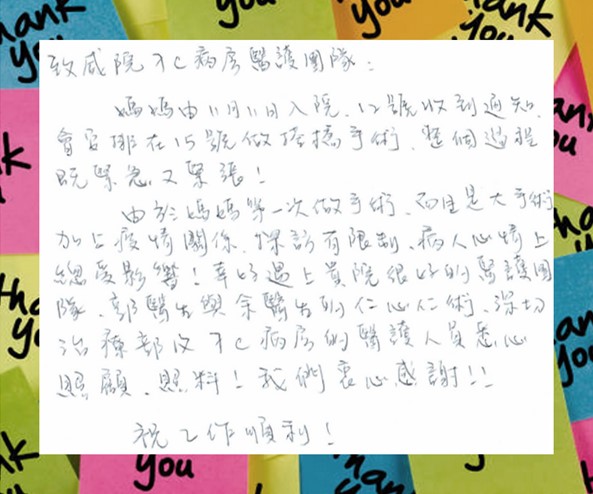 致威院7C病房醫護團隊：
媽媽由11月11日入院、12號收到通知，
會安排在15號做搭橋手術、整個過程
既緊急又緊張！
由於媽媽第一次做手術、而且是大手術
加上疫情關係，探訪有限制、病人心情上
總受影響！幸好遇上貴院很好的醫護團
隊、郭醫生與余醫生的仁心仁術、深切
治療部及7C病房的醫護人員悉心
照顧、照料！我們衷心感謝！！
祝工作順利！
thank
you
thank
you
thank
you
thank
you
you